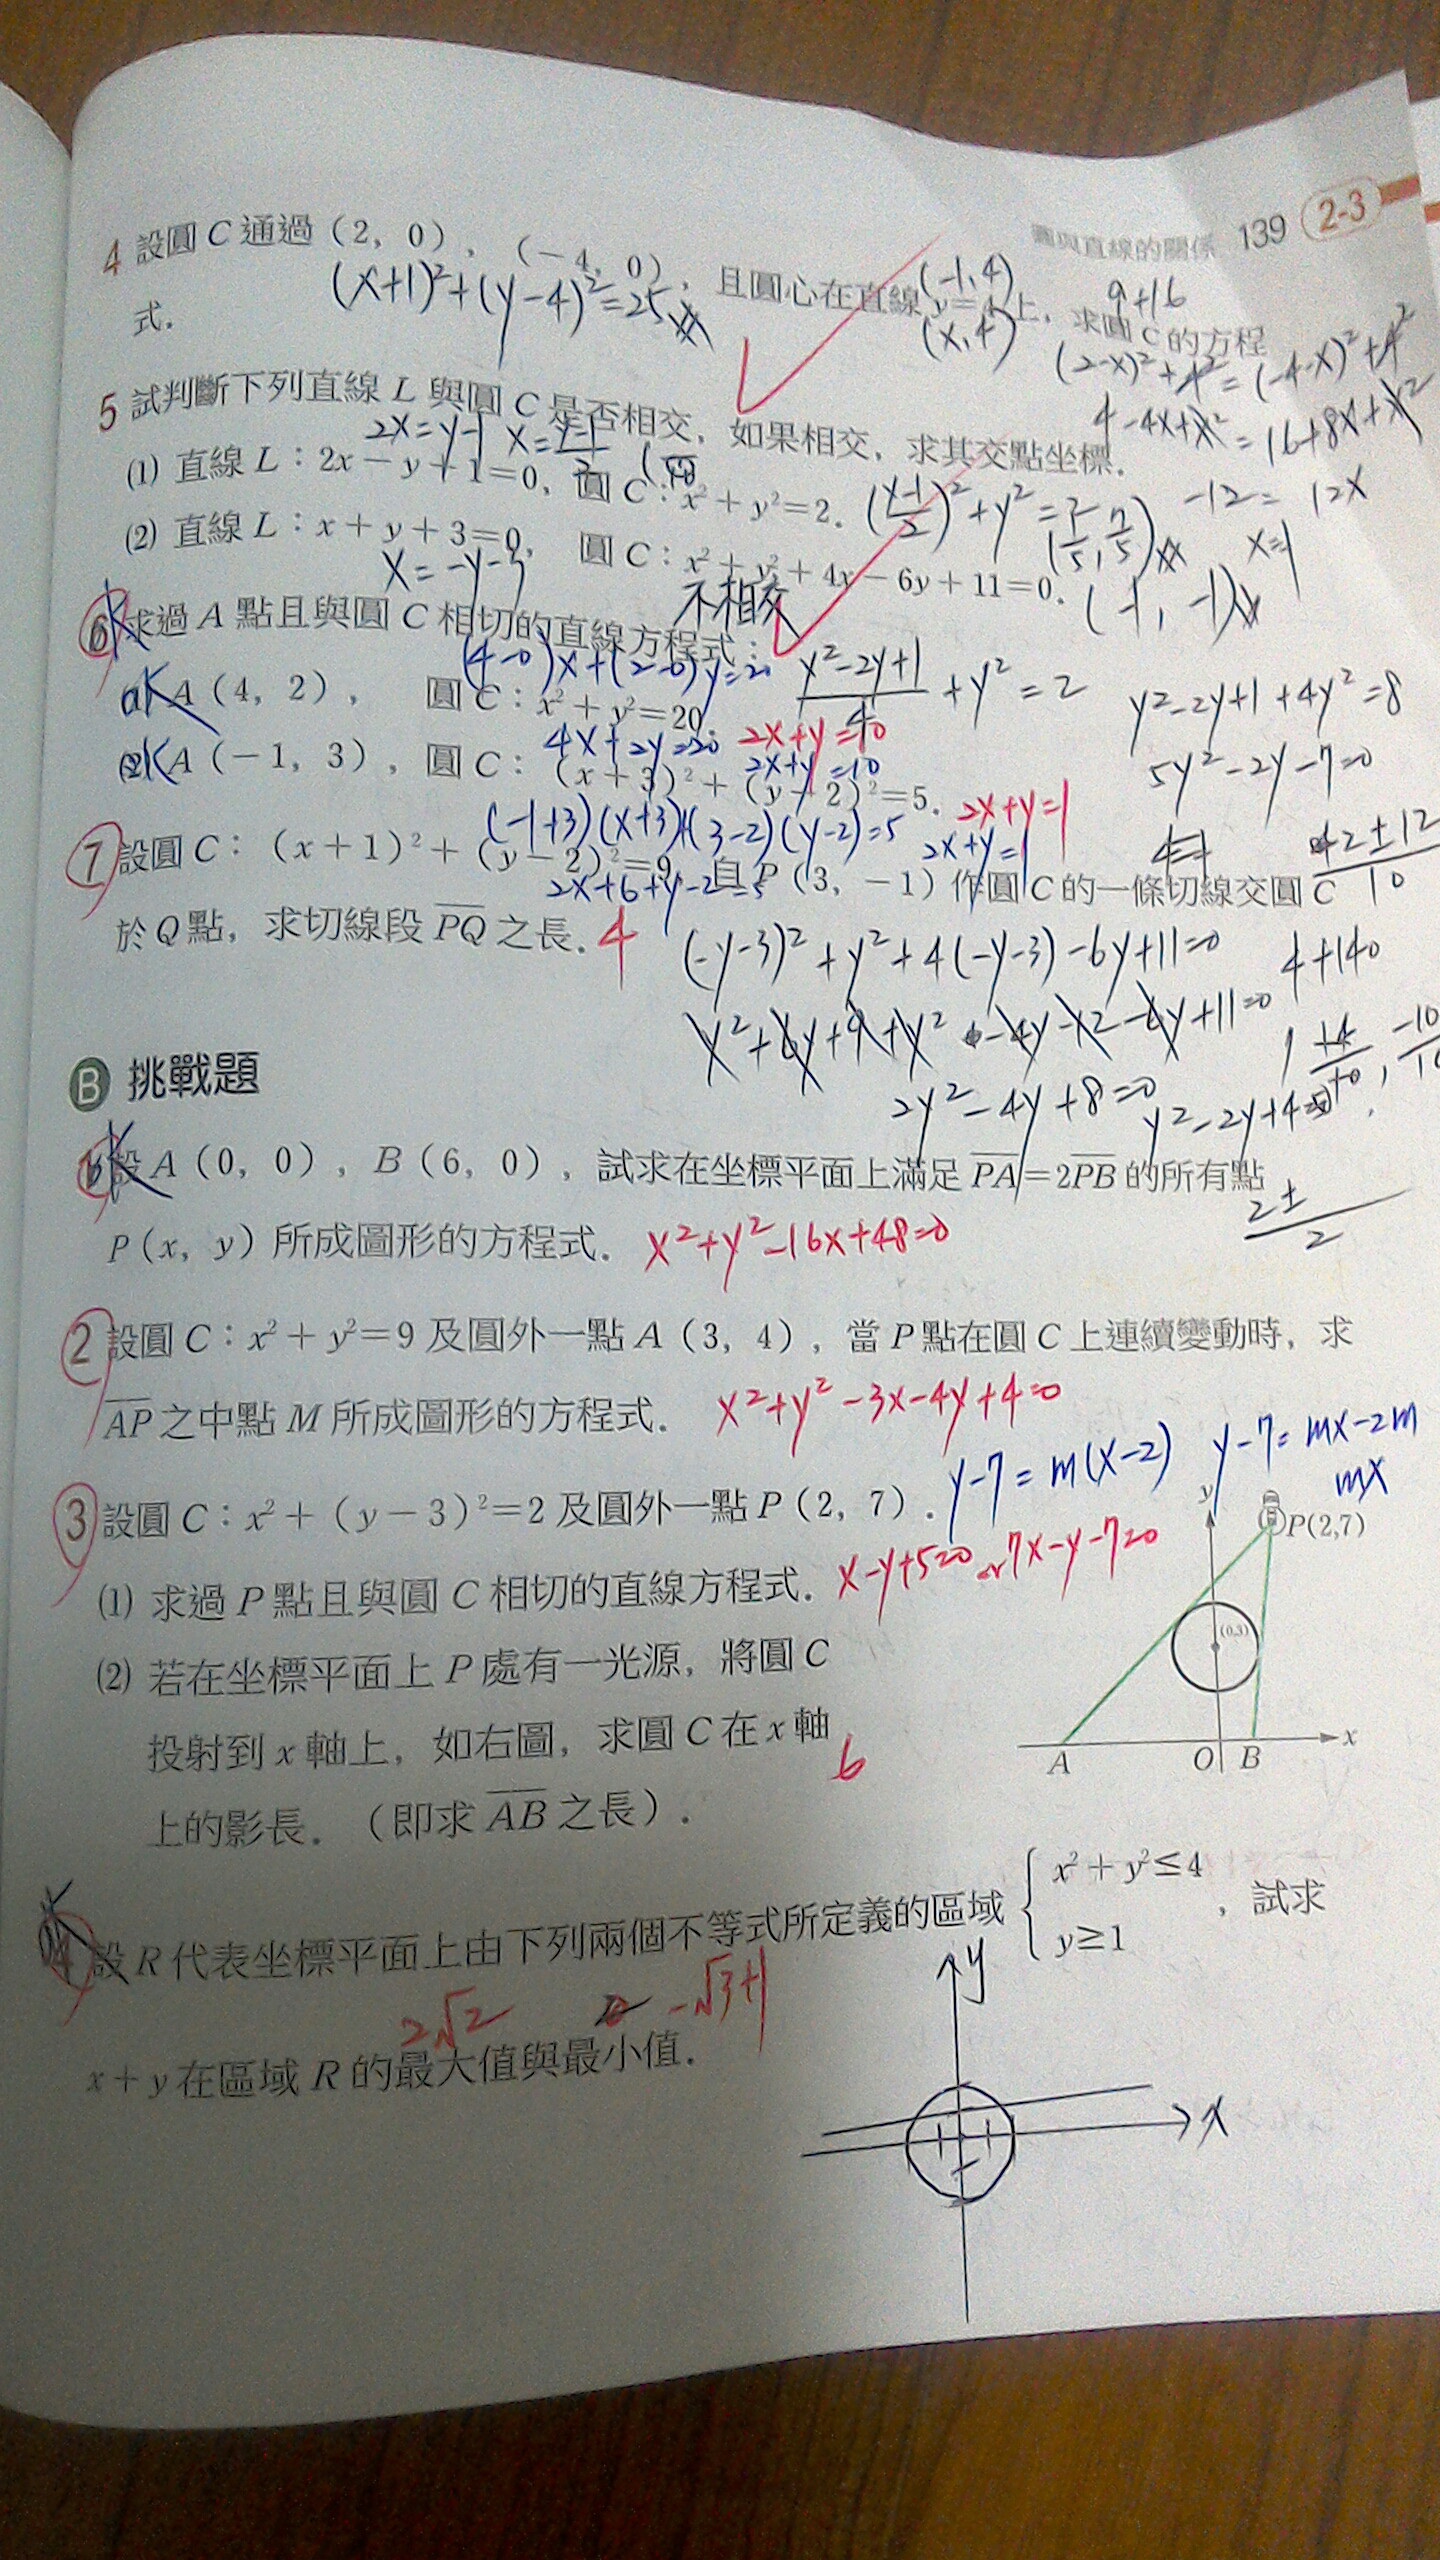 圓與直線的關係 139 2-3
4 設圓 C 通過（2, 0），（－4, 0），且圓心在直線 y＝4 上，求圓 C 的方程
式．
(x+1)²+(y-4)²=25
(-1,4)
(x,4)
9+16
(2-x)²+4²=(-4-x)²+4²
4-4x+x²=16+8x+x²
-12=12x
x=-1
5 試判斷下列直線 L 與圓 C 是否相交，如果相交，求其交點坐標．
2x=y-1 x=\frac{y-1}{2}
(1) 直線 L：2x－y＋1＝0，圓 C：x²＋y²＝2．
(\frac{1}{5}, \frac{7}{5})
(2) 直線 L：x＋y＋3＝0， 圓 C：x²＋y²＋4x－6y＋11＝0．
(-1, -1)
x=-y-3
不相交
6 求過 A 點且與圓 C 相切的直線方程式：
(4-0)x+(2-0)y=20
\frac{y²-2y+1}{4}+y²=2
y²-2y+1+4y²=8
(1) A（4, 2）， 圓 C：x²＋y²＝20．
4x+2y=20 2x+y=10
2x+y=10
5y²-2y-7=0
(2) A（－1, 3），圓 C：（x＋3）²＋（y－2）²＝5．
2x+y=1
(-1+3)(x+3)+(3-2)(y-2)=5
2x+y=1
\frac{2±12}{10}
7 設圓 C：（x＋1）²＋（y－2）²＝9，自 P（3, －1）作圓 C 的一條切線交圓 C
2x+6+y-2=5
於 Q 點，求切線段 PQ 之長．4
(-y-3)²+y²+4(-y-3)-6y+11=0
4+140
y²+6y+9+y²-4y-12-6y+11=0
2y²-4y+8=0
y²-2y+4=0
B 挑戰題
1 設 A（0, 0），B（6, 0），試求在坐標平面上滿足 PA＝2PB 的所有點
P（x, y）所成圖形的方程式．
x²+y²-16x+48=0
\frac{2±}{2}
2 設圓 C：x²＋y²＝9 及圓外一點 A（3, 4），當 P 點在圓 C 上連續變動時，求
AP 之中點 M 所成圖形的方程式．
x²+y²-3x-4y+4=0
y-7=m(x-2)
y-7=mx-2m
mx
3 設圓 C：x²＋（y－3）²＝2 及圓外一點 P（2, 7）．
(1) 求過 P 點且與圓 C 相切的直線方程式．
x-y+5=0 7x-y-7=0
(2) 若在坐標平面上 P 處有一光源，將圓 C
投射到 x 軸上，如右圖，求圓 C 在 x 軸
6
上的影長．（即求 AB 之長）．
y
P(2,7)
(0,3)
x
A O B
4 設 R 代表坐標平面上由下列兩個不等式所定義的區域 { x²＋y²≤4
y≥1 ，試求
2√2 -√3+1
x＋y 在區域 R 的最大值與最小值．
y
x